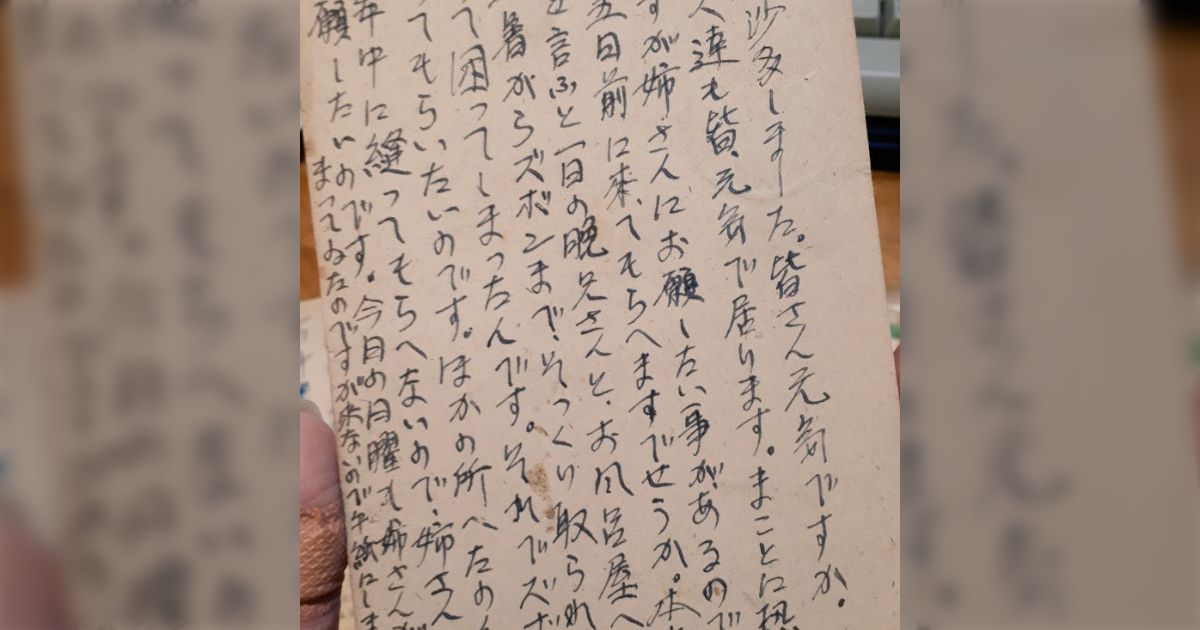 沙多しました。皆さん元気ですか。
達も皆、元気で居ります。まことに
すが姉さんにお願ーたい事があるので
五日前に来てもらへますでせうか。本
言ふと一日の晩兄さんと、お風呂屋へ
着からズボンまで、そっくり取られ
て困ってしまったんです。それでズボ
てもらいたいのです。ほかの所へたの
年中に縫ってもらへないので、姉さん
願したいのです。今日の日曜も姉さんが
まってゐたのですが来ないので手紙にしま